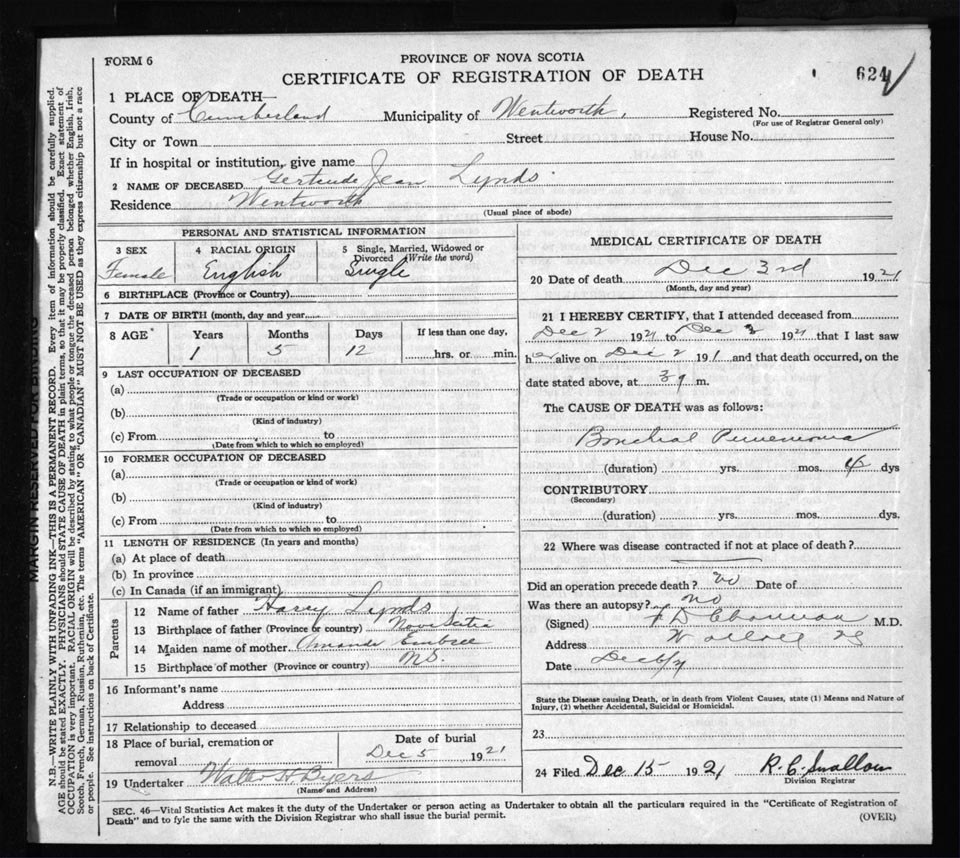 FORM 6
PROVINCE OF NOVA SCOTIA
CERTIFICATE OF REGISTRATION OF DEATH
624
1 PLACE OF DEATH—
County of Cumberland Municipality of Wentworth, Registered No.
(For use of Registrar General only)
City or Town Street House No.
If in hospital or institution, give name
2 NAME OF DECEASED Gertrude Jean Lynds
Residence Wentworth
(Usual place of abode)
PERSONAL AND STATISTICAL INFORMATION
3 SEX 4 RACIAL ORIGIN 5 Single, Married, Widowed or Divorced (Write the word)
Female English Single
6 BIRTHPLACE (Province or Country)
7 DATE OF BIRTH (month, day and year)
8 AGE Years Months Days If less than one day,
1 5 12 hrs. or min.
9 LAST OCCUPATION OF DECEASED
(a)
(Trade or occupation or kind or work)
(b)
(Kind of industry)
(c) From to
(Date from which to which so employed)
10 FORMER OCCUPATION OF DECEASED
(a)
(Trade or occupation or kind of work)
(b)
(Kind of industry)
(c) From to
(Date from which to which so employed)
11 LENGTH OF RESIDENCE (In years and months)
(a) At place of death
(b) In province
(c) In Canada (if an immigrant)
Parents
12 Name of father Harry Lynds
13 Birthplace of father (Province or country) Nova Scotia
14 Maiden name of mother
15 Birthplace of mother (Province or country) NS.
16 Informant's name
Address
17 Relationship to deceased
18 Place of burial, cremation or Date of burial
removal Dec 5 1921
19 Undertaker Walter H Byers
(Name and Address)
MEDICAL CERTIFICATE OF DEATH
20 Date of death Dec 3rd 1921
(Month, day and year)
21 I HEREBY CERTIFY, that I attended deceased from
Dec 2 1921 to Dec 1921 that I last saw
h alive on Dec 2 191 and that death occurred, on the
date stated above, at m.
The CAUSE OF DEATH was as follows:
Bronchial Pneumonia
(duration) yrs. mos. dys
CONTRIBUTORY
(Secondary)
(duration) yrs. mos. dys.
22 Where was disease contracted if not at place of death?
Did an operation precede death? no Date of
Was there an autopsy? no
(Signed) M.D.
Address
Date
State the Disease causing Death, or in death from Violent Causes, state (1) Means and Nature of
Injury, (2) whether Accidental, Suicidal or Homicidal.
23
24 Filed Dec 15 1921 R. C. Swallow
Division Registrar
SEC. 46—Vital Statistics Act makes it the duty of the Undertaker or person acting as Undertaker to obtain all the particulars required in the "Certificate of Registration of
Death" and to fyle the same with the Division Registrar who shall issue the burial permit.
(OVER)
MARGIN RESERVED FOR BINDING
N.B.—WRITE PLAINLY WITH UNFADING INK—THIS IS A PERMANENT RECORD. Every item of information should be carefully supplied.
AGE should be stated EXACTLY. PHYSICIANS should STATE CAUSE OF DEATH in plain terms, so that it may be properly classified. Exact statement of
OCCUPATION is very important. RACIAL ORIGIN will be described by stating to what people or tongue the deceased person belonged whether English, Irish,
Scotch, French, German, Russian, Ruthenian, etc. The terms "AMERICAN" OR "CANADIAN" MUST NOT BE USED as they express citizenship but not a race
or people. See instructions on back of Certificate.